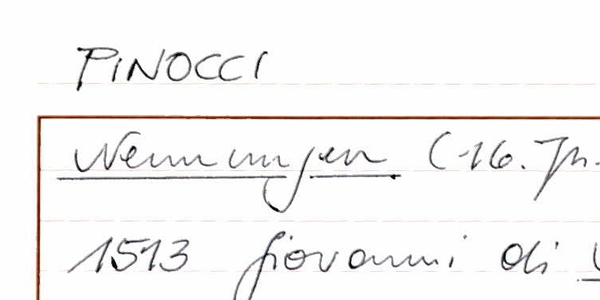 PINOCCI
Nennungen (-16. Jh.
1513 Giovanni di